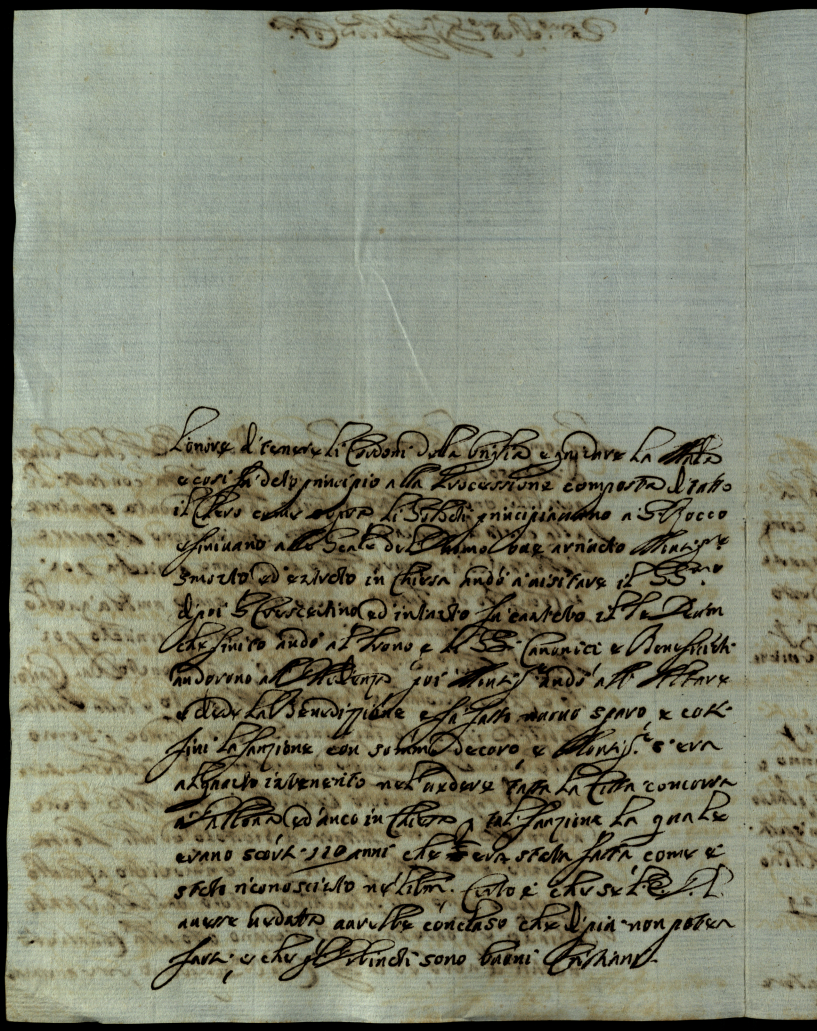 l'onore di tenere li Cordoni della briglia e guidare la Mula
e così fu dato principio alla Processione composta di tutto
il Clero come sopra li Soldati principiavano a S. Rocco
e finivano alle Scale del Duomo ove arrivato Monsig.re
smontò ed entrato in Chiesa andò a visitare il SS.mo
di poi S. Crescentino ed intanto fu cantato il Te Deum
che finito andò al trono e li SS.ri Canonici e Beneficiati
andorono all' poi Monsig.re andò all' Altare
e diede la Benedizzione e fu fatto nuovo sparo, e così
finì la funzione con sommo decoro e Monsig.re s'era
alquanto intenerito nel vedere tutta la Città concorsa
a ed anco in Chiesa a tal funzione la quale
erano scorsi 110 anni che era stata fatta come è
stato riconosciuto ne' libri. Certo è che se l'E. S.
avesse veduta avrebbe concluso che di più non potea
farsi, e che gl'Urbinati sono buoni Cristiani.